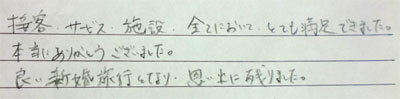 接客、サービス、施設、全てにおいて、とても満足できました。
本当にありがとうございました。
良い新婚旅行となり、思い出に残りました。